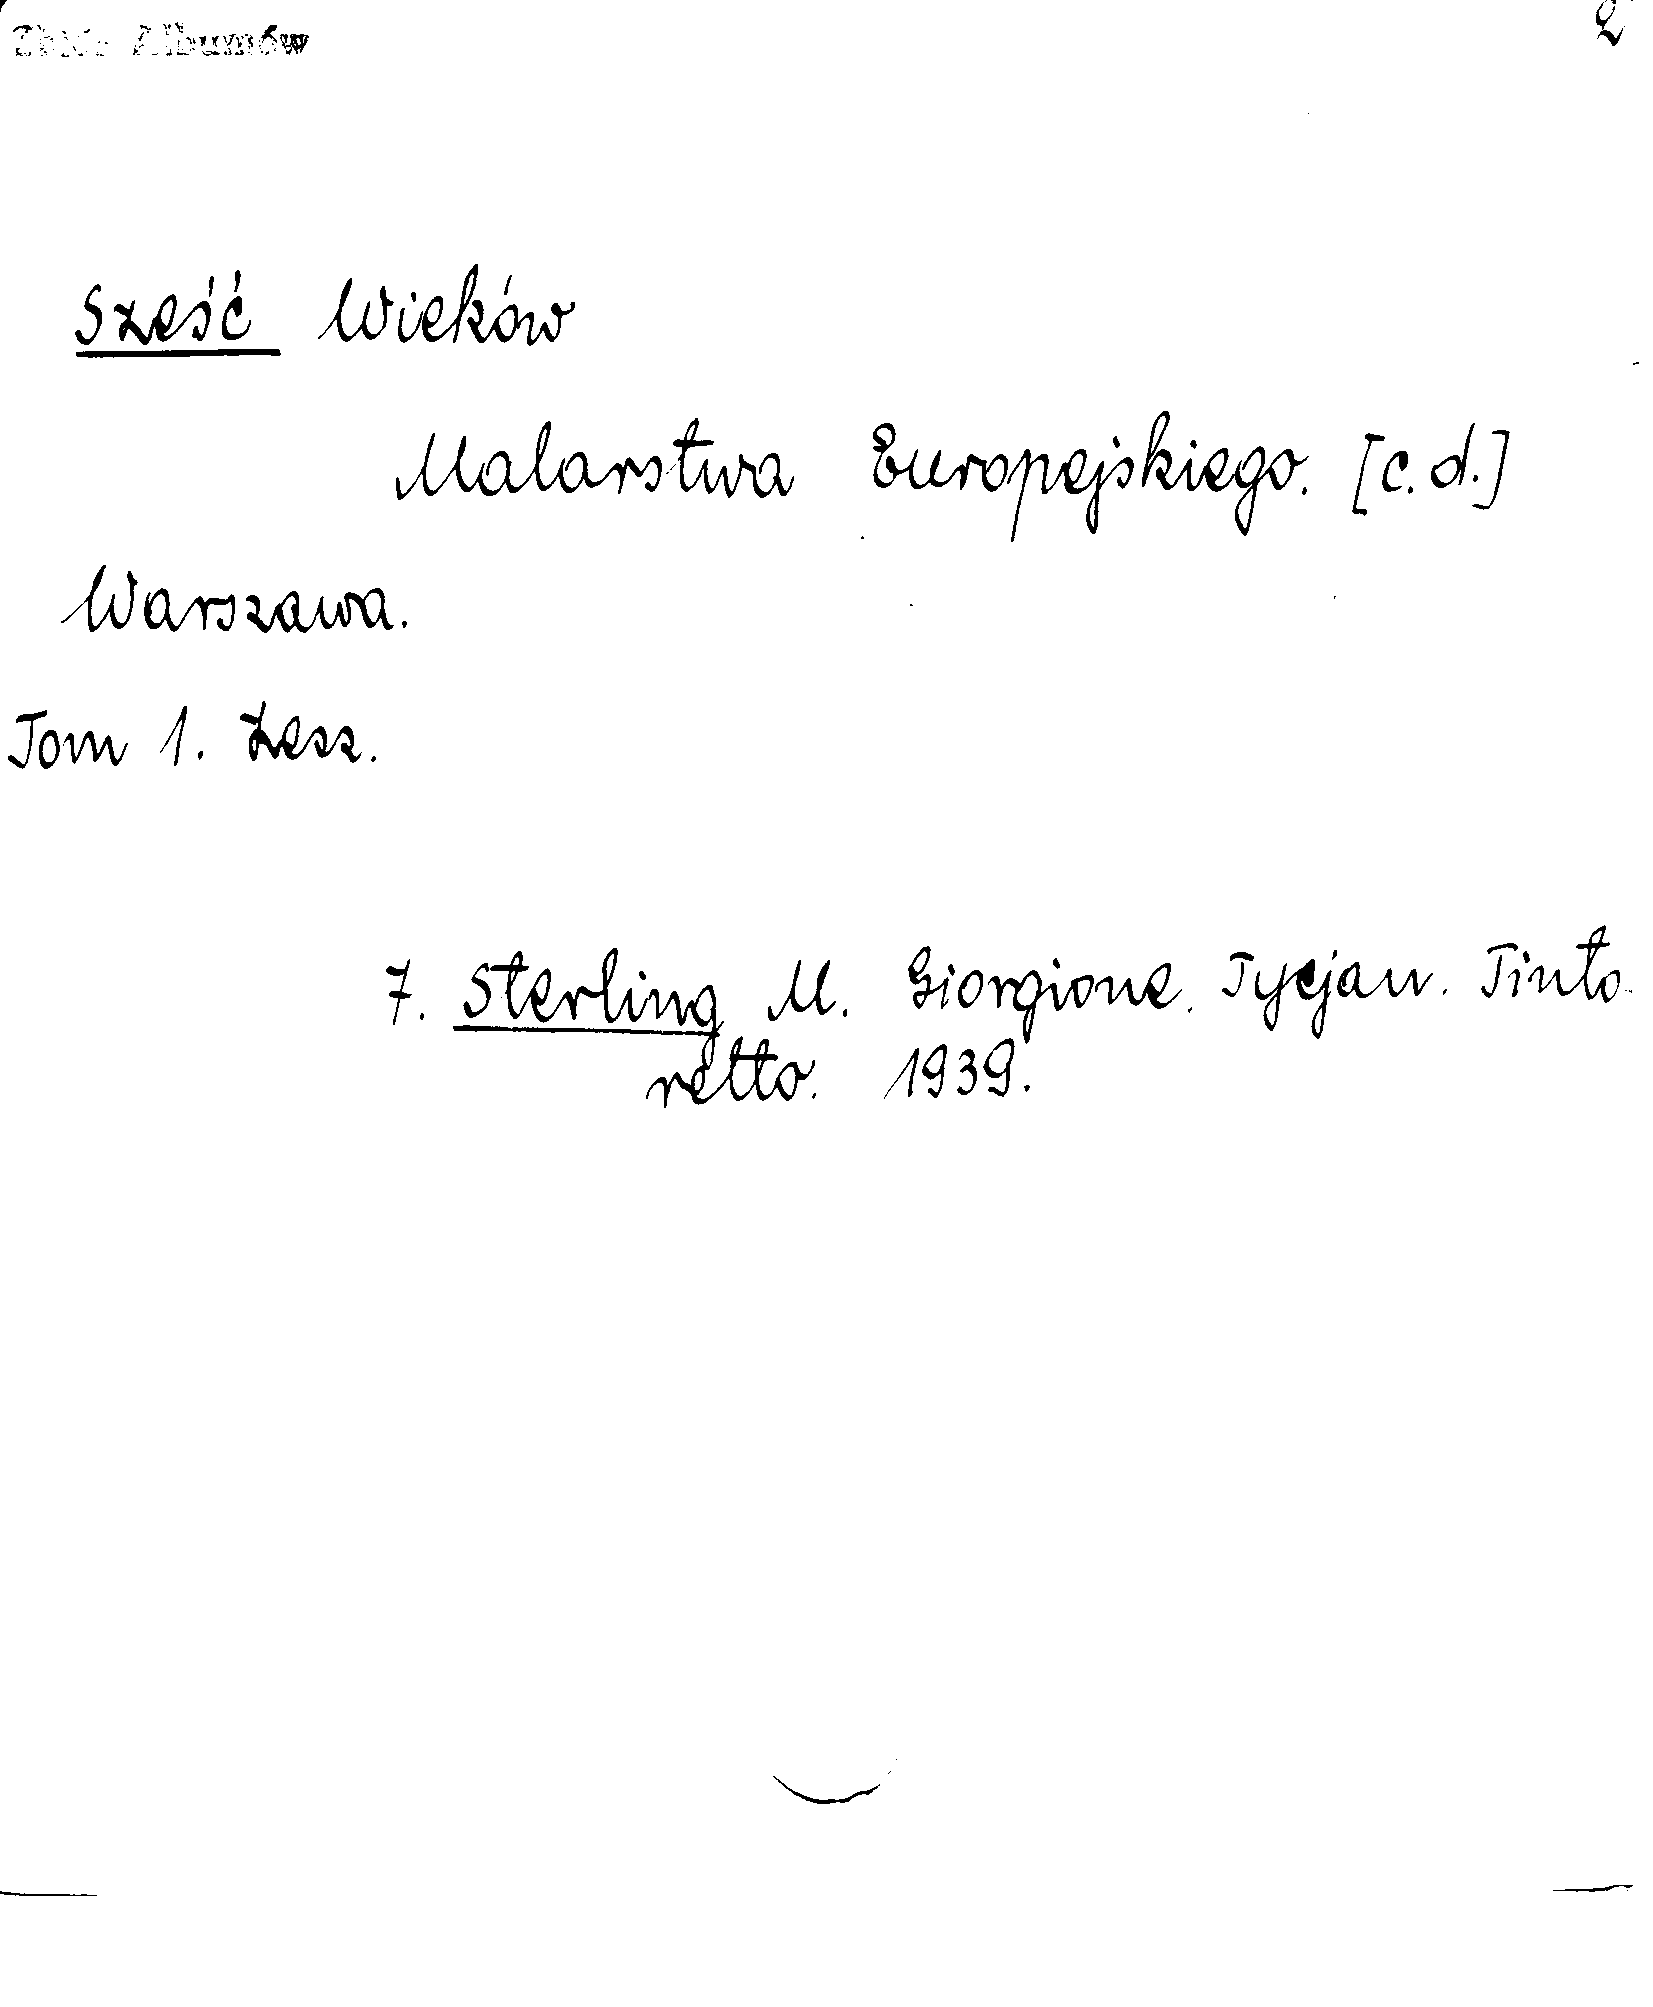 Zbiór Albumów
2
Sześć Wieków
Malarstwa Europejskiego. [c.d.]
Warszawa.
Tom 1. Zesz.
7. Sterling M. Giorgione. Tycjan. Tinto-
retto. 1939.